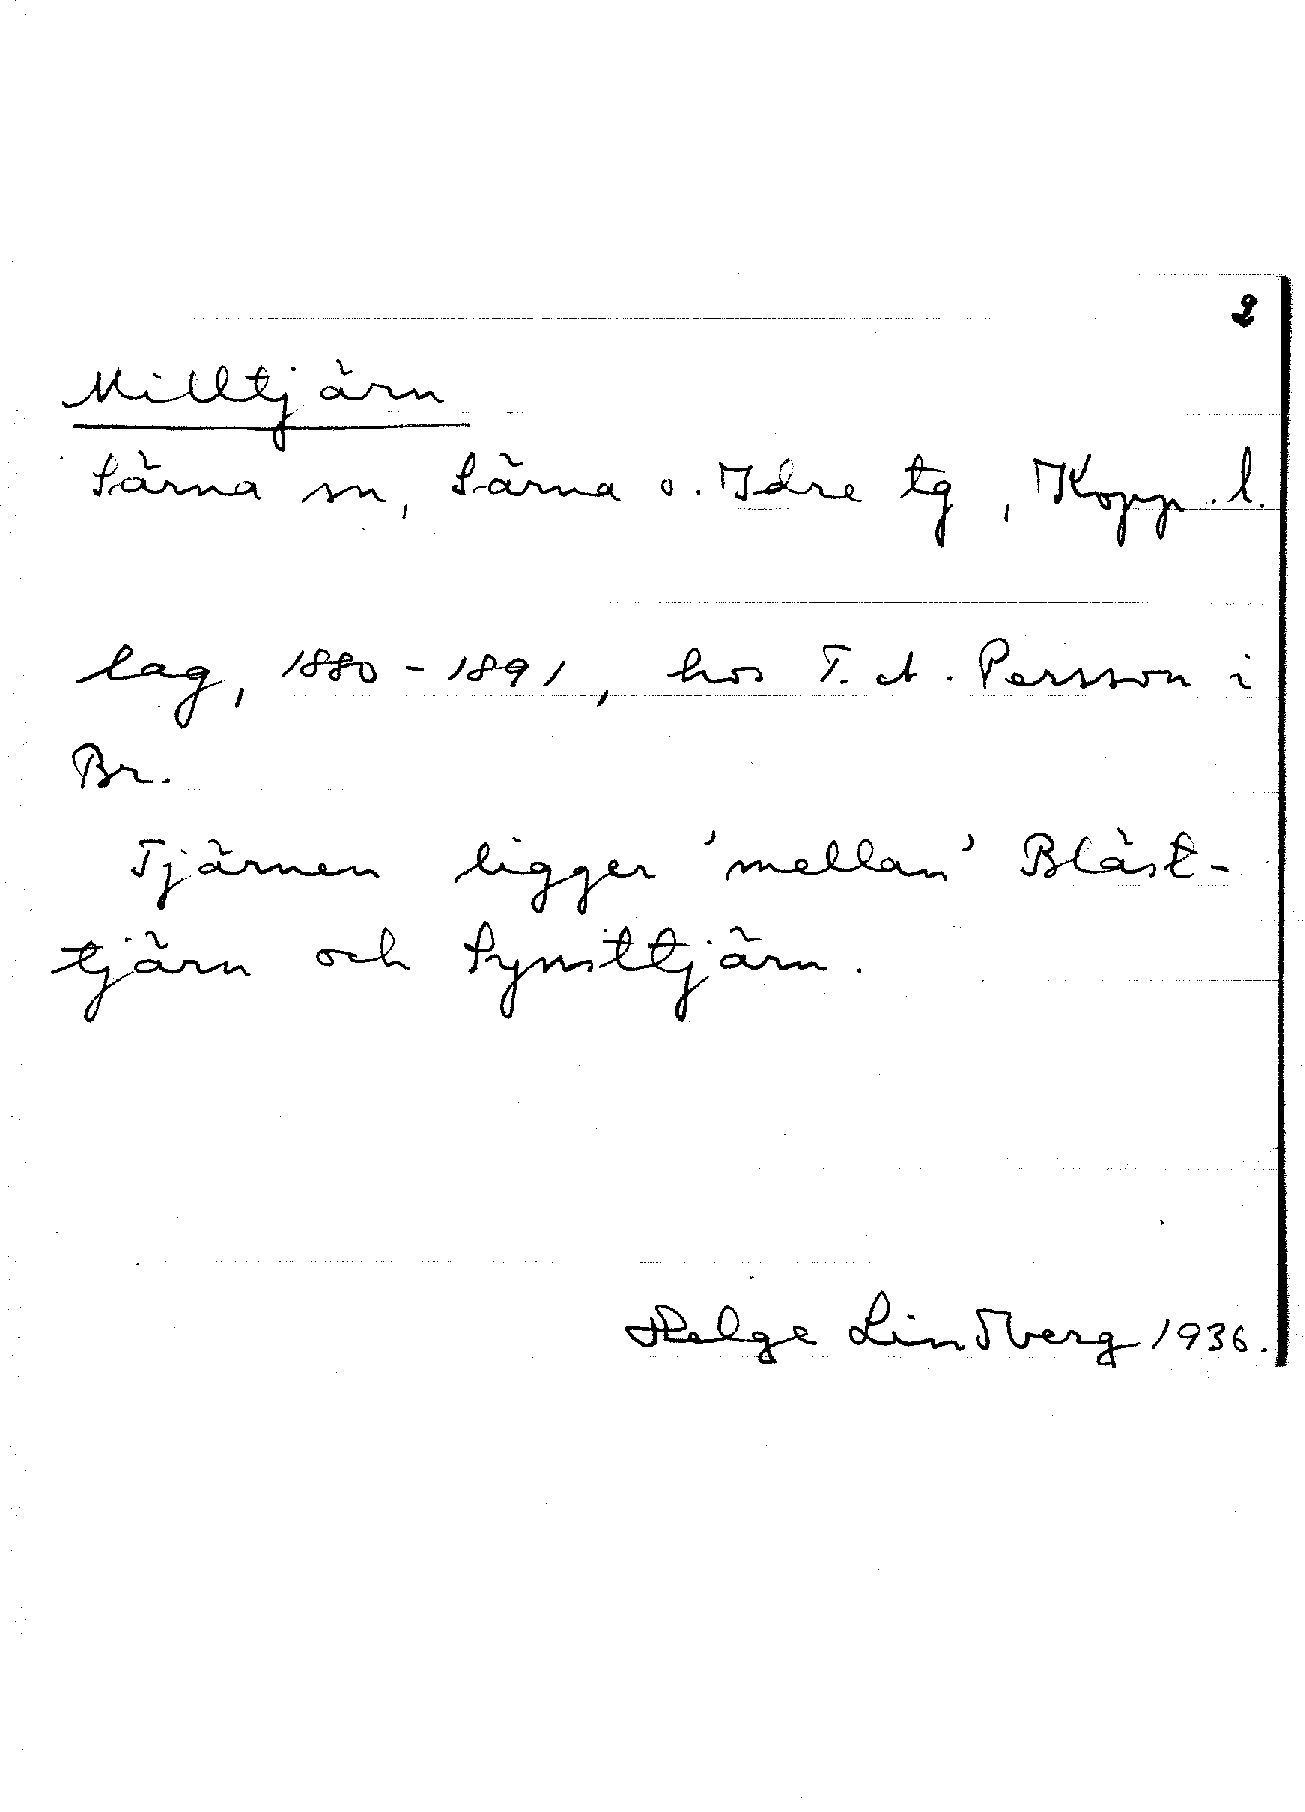 2
Milltjärn
Särna sn, Särna o. Idre tg, Kopp. l.
lag, 1880-1891, hos T. A. Persson i
Br.
Tjärnen ligger 'mellan' Bläst-
tjärn och Synsttjärn.
Helge Lindberg 1936.